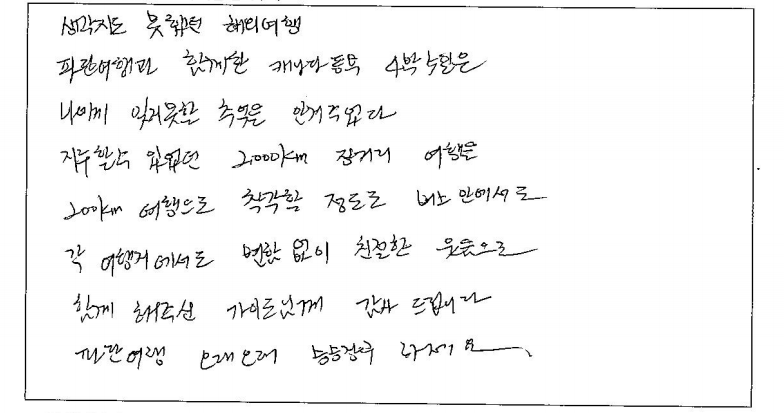 생각지도 못했던 해외여행
파란여행과 함께한 캐나다동부 4박5일은
나에게 잊지못할 추억을 안겨주었다
지루할수 있었던 2,000km 장거리 여행을
200km 여행으로 착각할 정도로 버스 안에서도
각 여행지에서도 변함 없이 친절한 웃음으로
함께 해주신 가이드님께 감사 드립니다
파란여행 오래오래 승승장구 하세요~